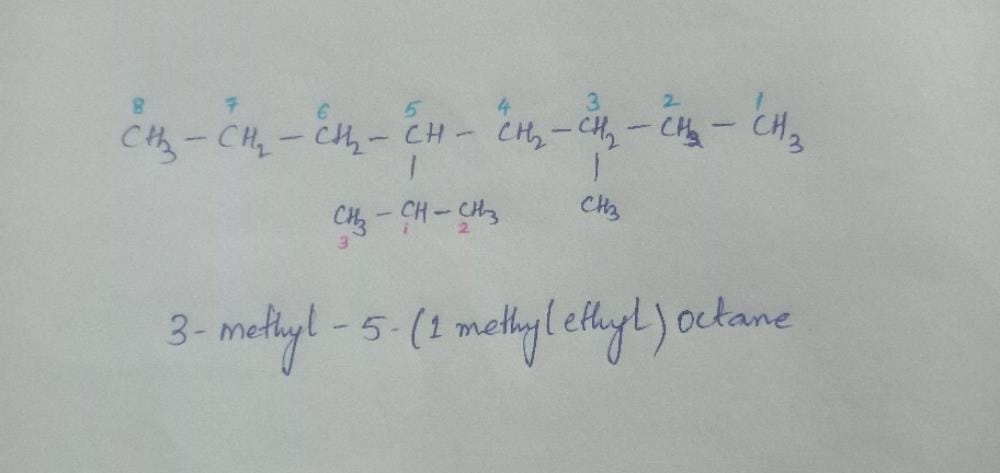 8 7 6 5 4 3 2 1
CH₃ – CH₂ – CH₂ – CH – CH₂ – CH₂ – CH₂ – CH₃
| |
CH₃ – CH – CH₃ CH₃
3 1 2
3-methyl-5-(1 methylethyl) octane